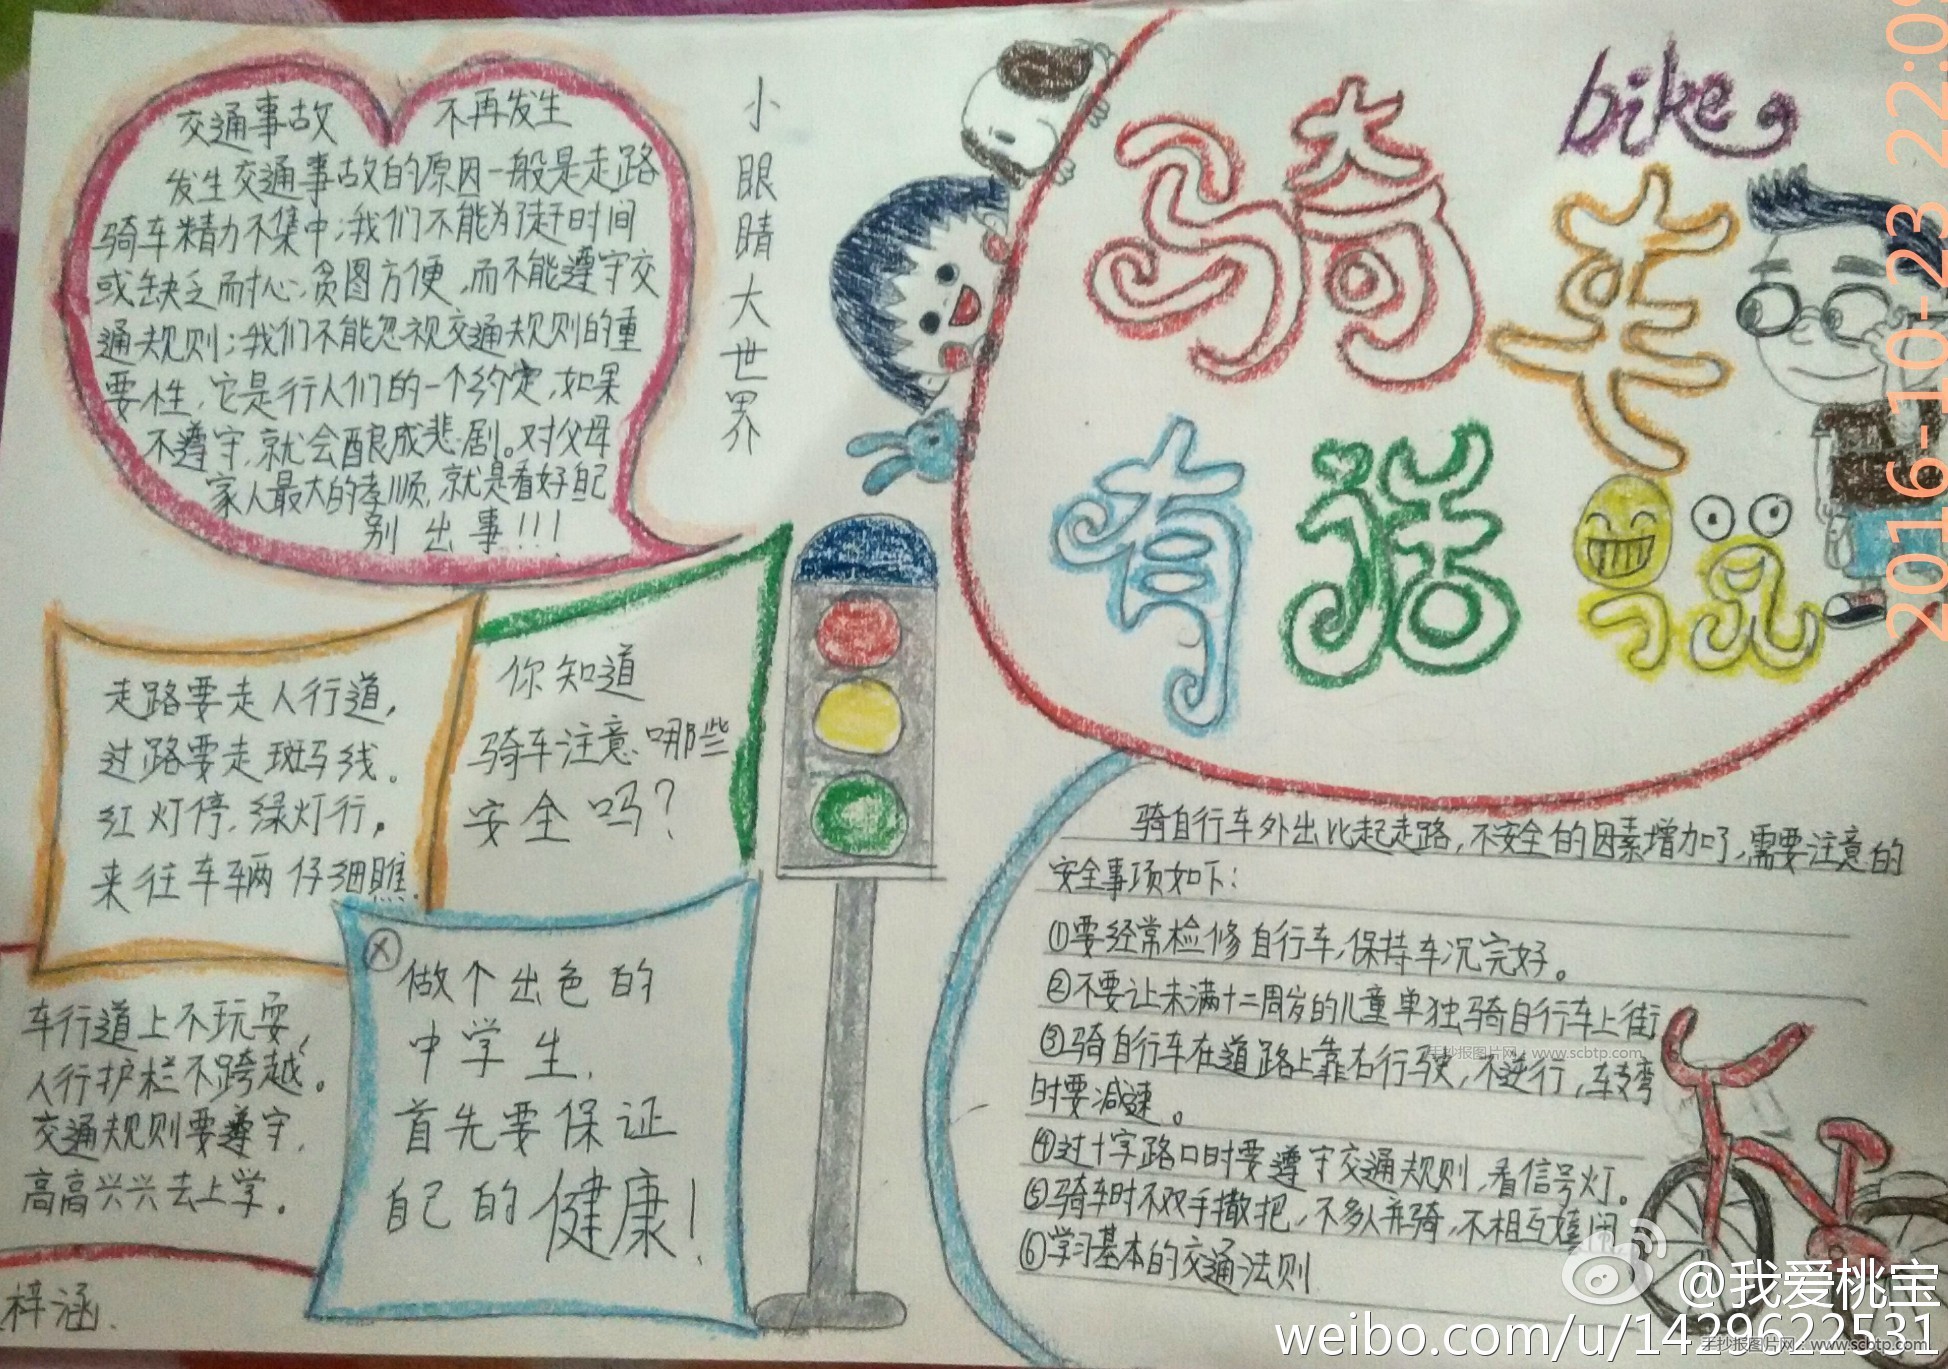 交通事故 不再发生
发生交通事故的原因一般是走路
骑车精力不集中;我们不能为了赶时间
或缺乏耐心,贪图方便,而不能遵守交
通规则;我们不能忽视交通规则的重
要性,它是行人们的一个约定,如果
不遵守,就会酿成悲剧。对父母
家人最大的孝顺,就是看好自己
别出事!!!
小眼睛大世界
bike
骑车
有话说
走路要走人行道,
过路要走斑马线。
红灯停,绿灯行,
来往车辆仔细瞧.
车行道上不玩耍,
人行护栏不跨越。
交通规则要遵守,
高高兴兴去上学。
梓涵.
你知道
骑车注意哪些
安全吗?
做个出色的
中学生,
首先要保证
自己的健康!
骑自行车外出比起走路,不安全的因素增加了,需要注意的
安全事项如下:
①要经常检修自行车,保持车况完好。
②不要让未满十二周岁的儿童单独骑自行车上街
③骑自行车在道路上靠右行驶,不逆行,转弯
时要减速。
④过十字路口时要遵守交通规则,看信号灯。
⑤骑车时不双手撒把,不多人并骑,不相互嬉闹
⑥学习基本的交通法则
手抄报图片网:www.scbtp.com
@我爱桃宝
weibo.com/u/1429622531
手抄报图片网:www.scbtp.com
2016-10-23 22:0